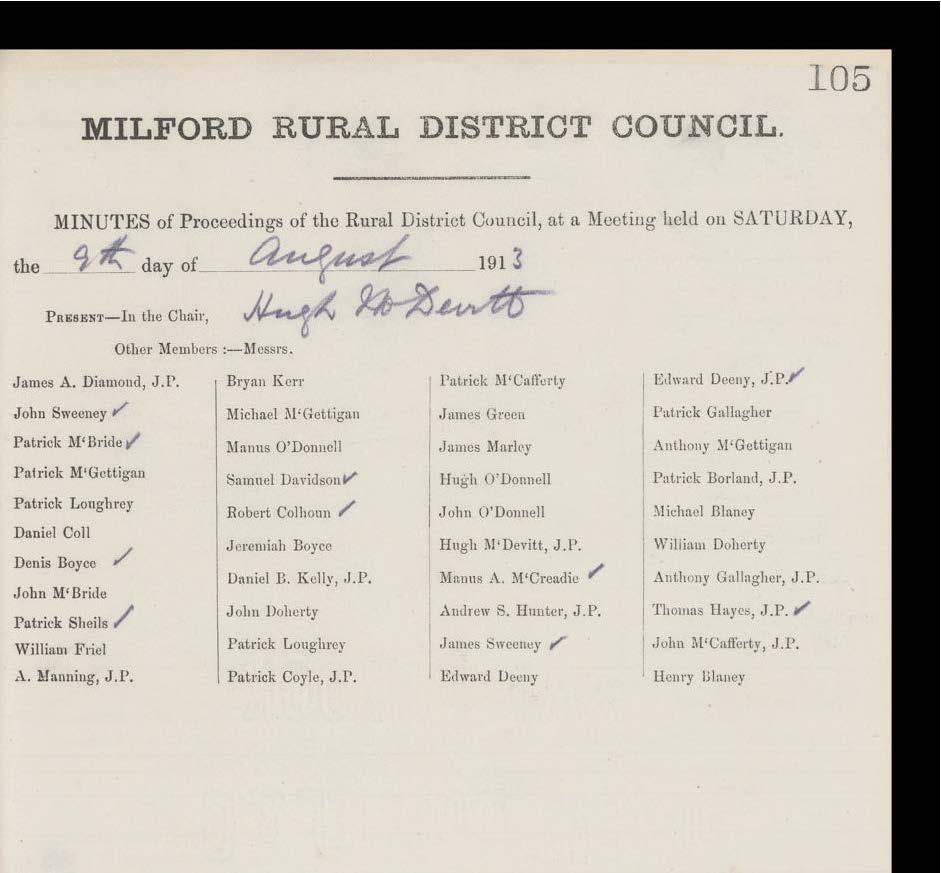 105
MILFORD RURAL DISTRICT COUNCIL.
MINUTES of Proceedings of the Rural District Council, at a Meeting held on SATURDAY,
the 9th day of August 1913
PRESENT—In the Chair, Hugh McDevitt
Other Members :—Messrs.
James A. Diamond, J.P.
John Sweeney ✓
Patrick M‘Bride ✓
Patrick M‘Gettigan
Patrick Loughrey
Daniel Coll
Denis Boyce ✓
John M‘Bride
Patrick Sheils ✓
William Friel
A. Manning, J.P.
Bryan Kerr
Michael M‘Gettigan
Manus O’Donnell
Samuel Davidson ✓
Robert Colhoun ✓
Jeremiah Boyce
Daniel B. Kelly, J.P.
John Doherty
Patrick Loughrey
Patrick Coyle, J.P.
Patrick M‘Cafferty
James Green
James Marley
Hugh O’Donnell
John O’Donnell
Hugh M‘Devitt, J.P.
Manus A. M‘Creadie ✓
Andrew S. Hunter, J.P.
James Sweeney ✓
Edward Deeny
Edward Deeny, J.P. ✓
Patrick Gallagher
Anthony M‘Gettigan
Patrick Borland, J.P.
Michael Blaney
William Doherty
Anthony Gallagher, J.P.
Thomas Hayes, J.P. ✓
John M‘Cafferty, J.P.
Henry Blaney